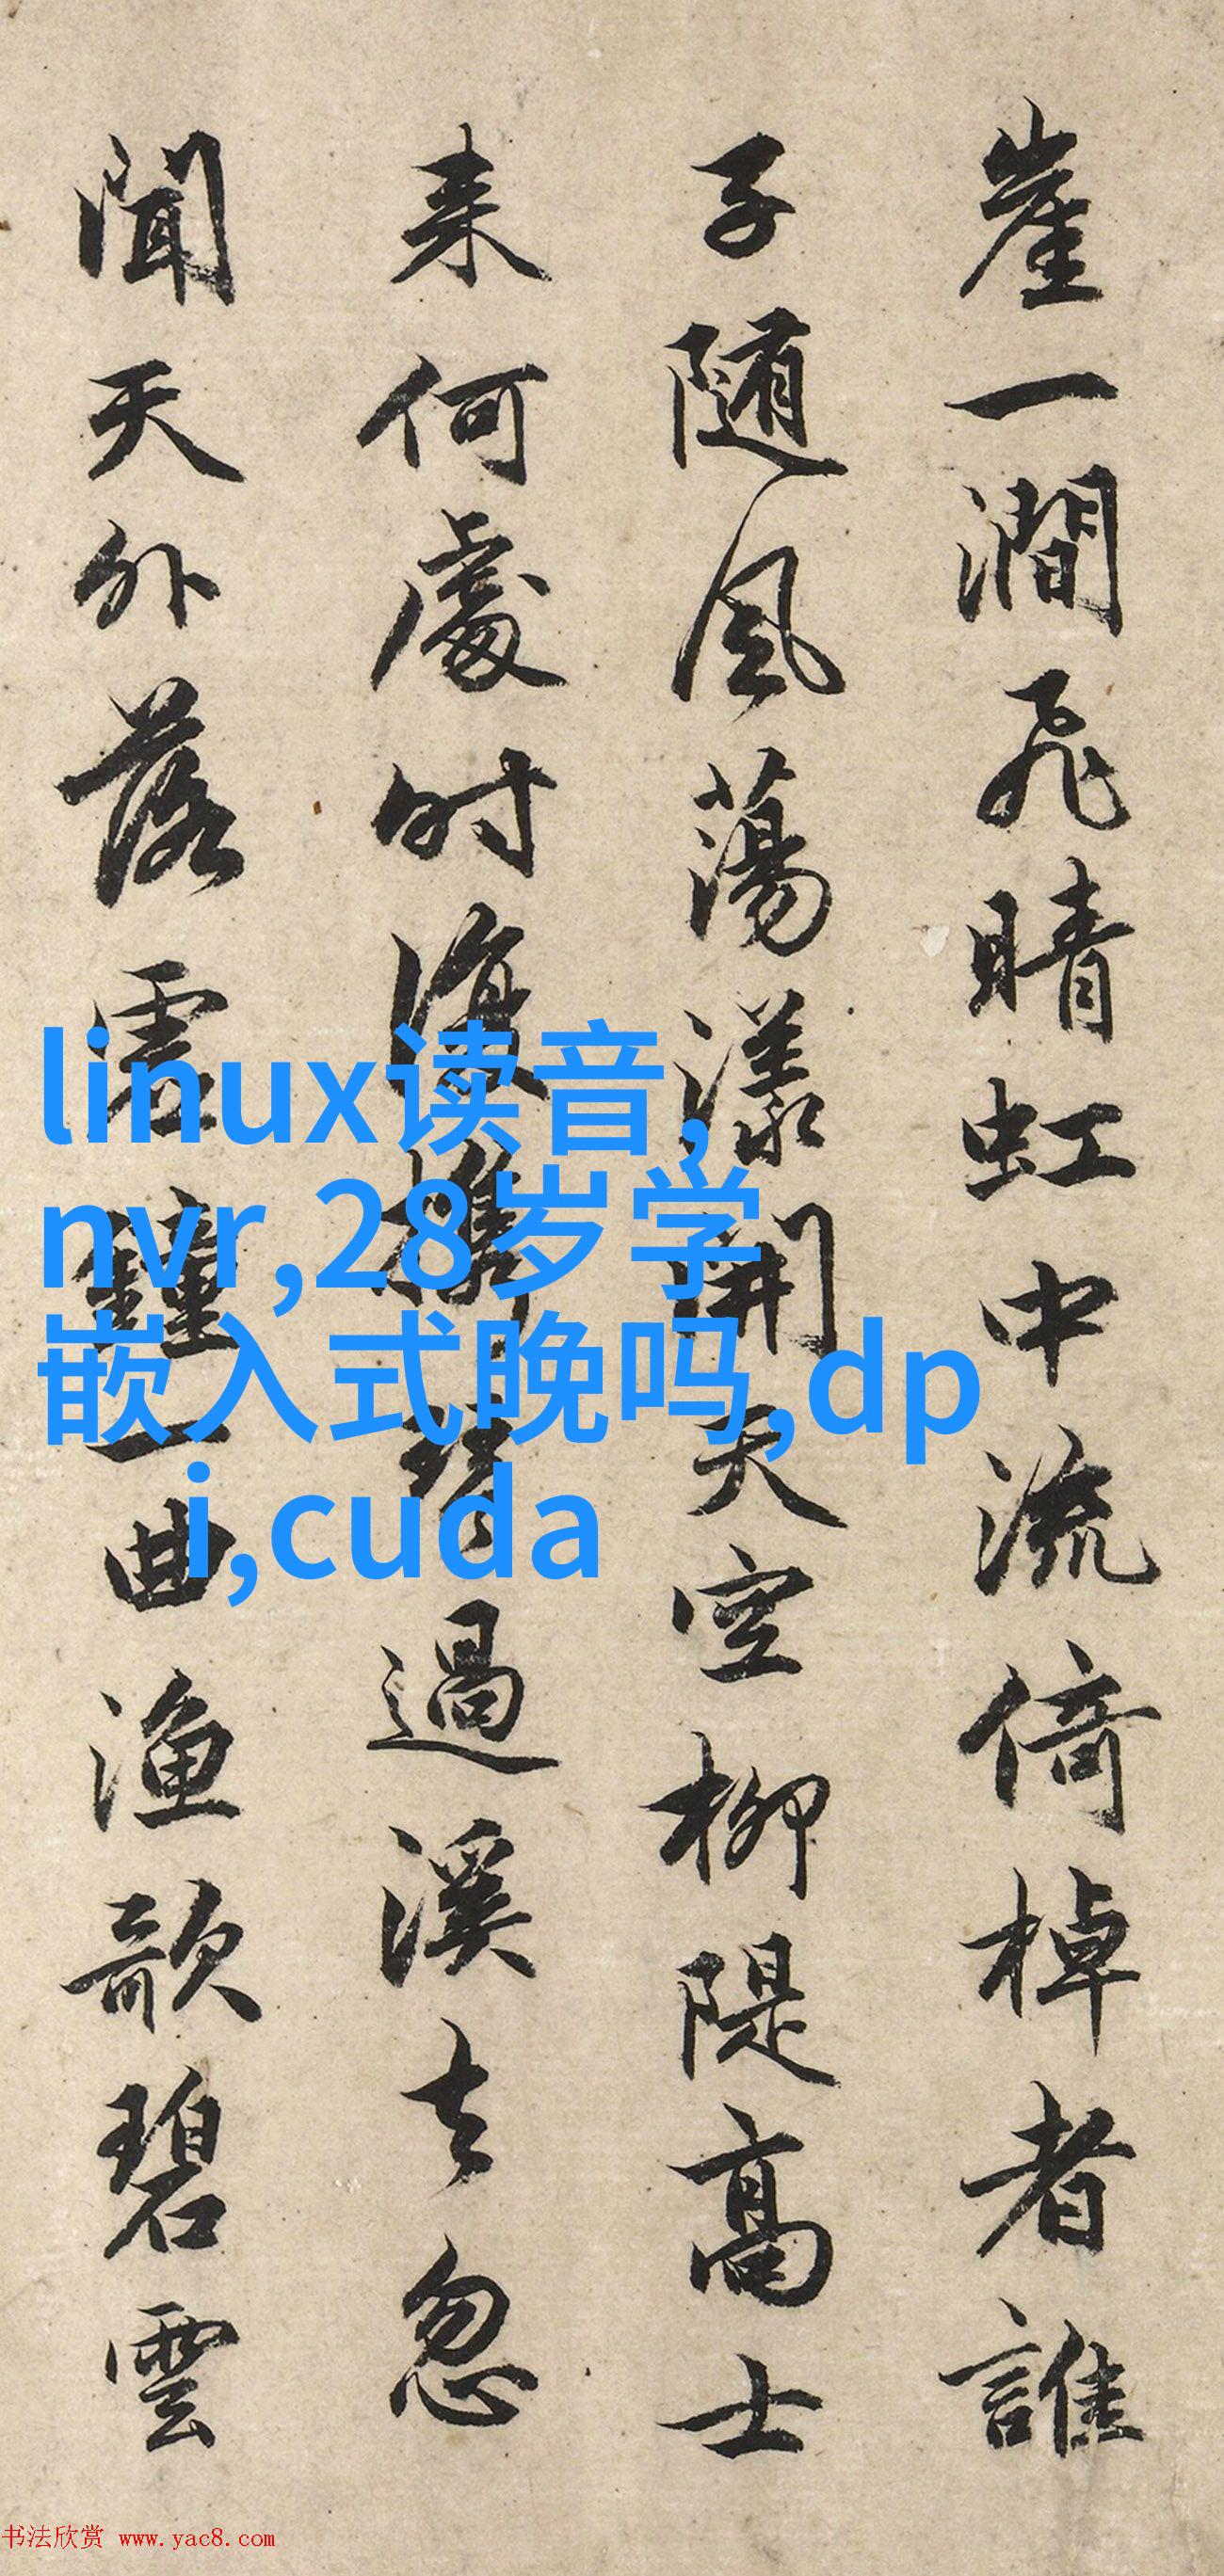 崖一澗飛晴虹中流倚棹者誰
子随風蕩漾開天空柳隄高士
来何處時復携琴過溪去忽
聞天外落雲鐘一曲漁歌碧雲
linux读音,
nvr,28岁学
嵌入式晚吗,dp
i,cuda
书法欣赏 www.yac8.com